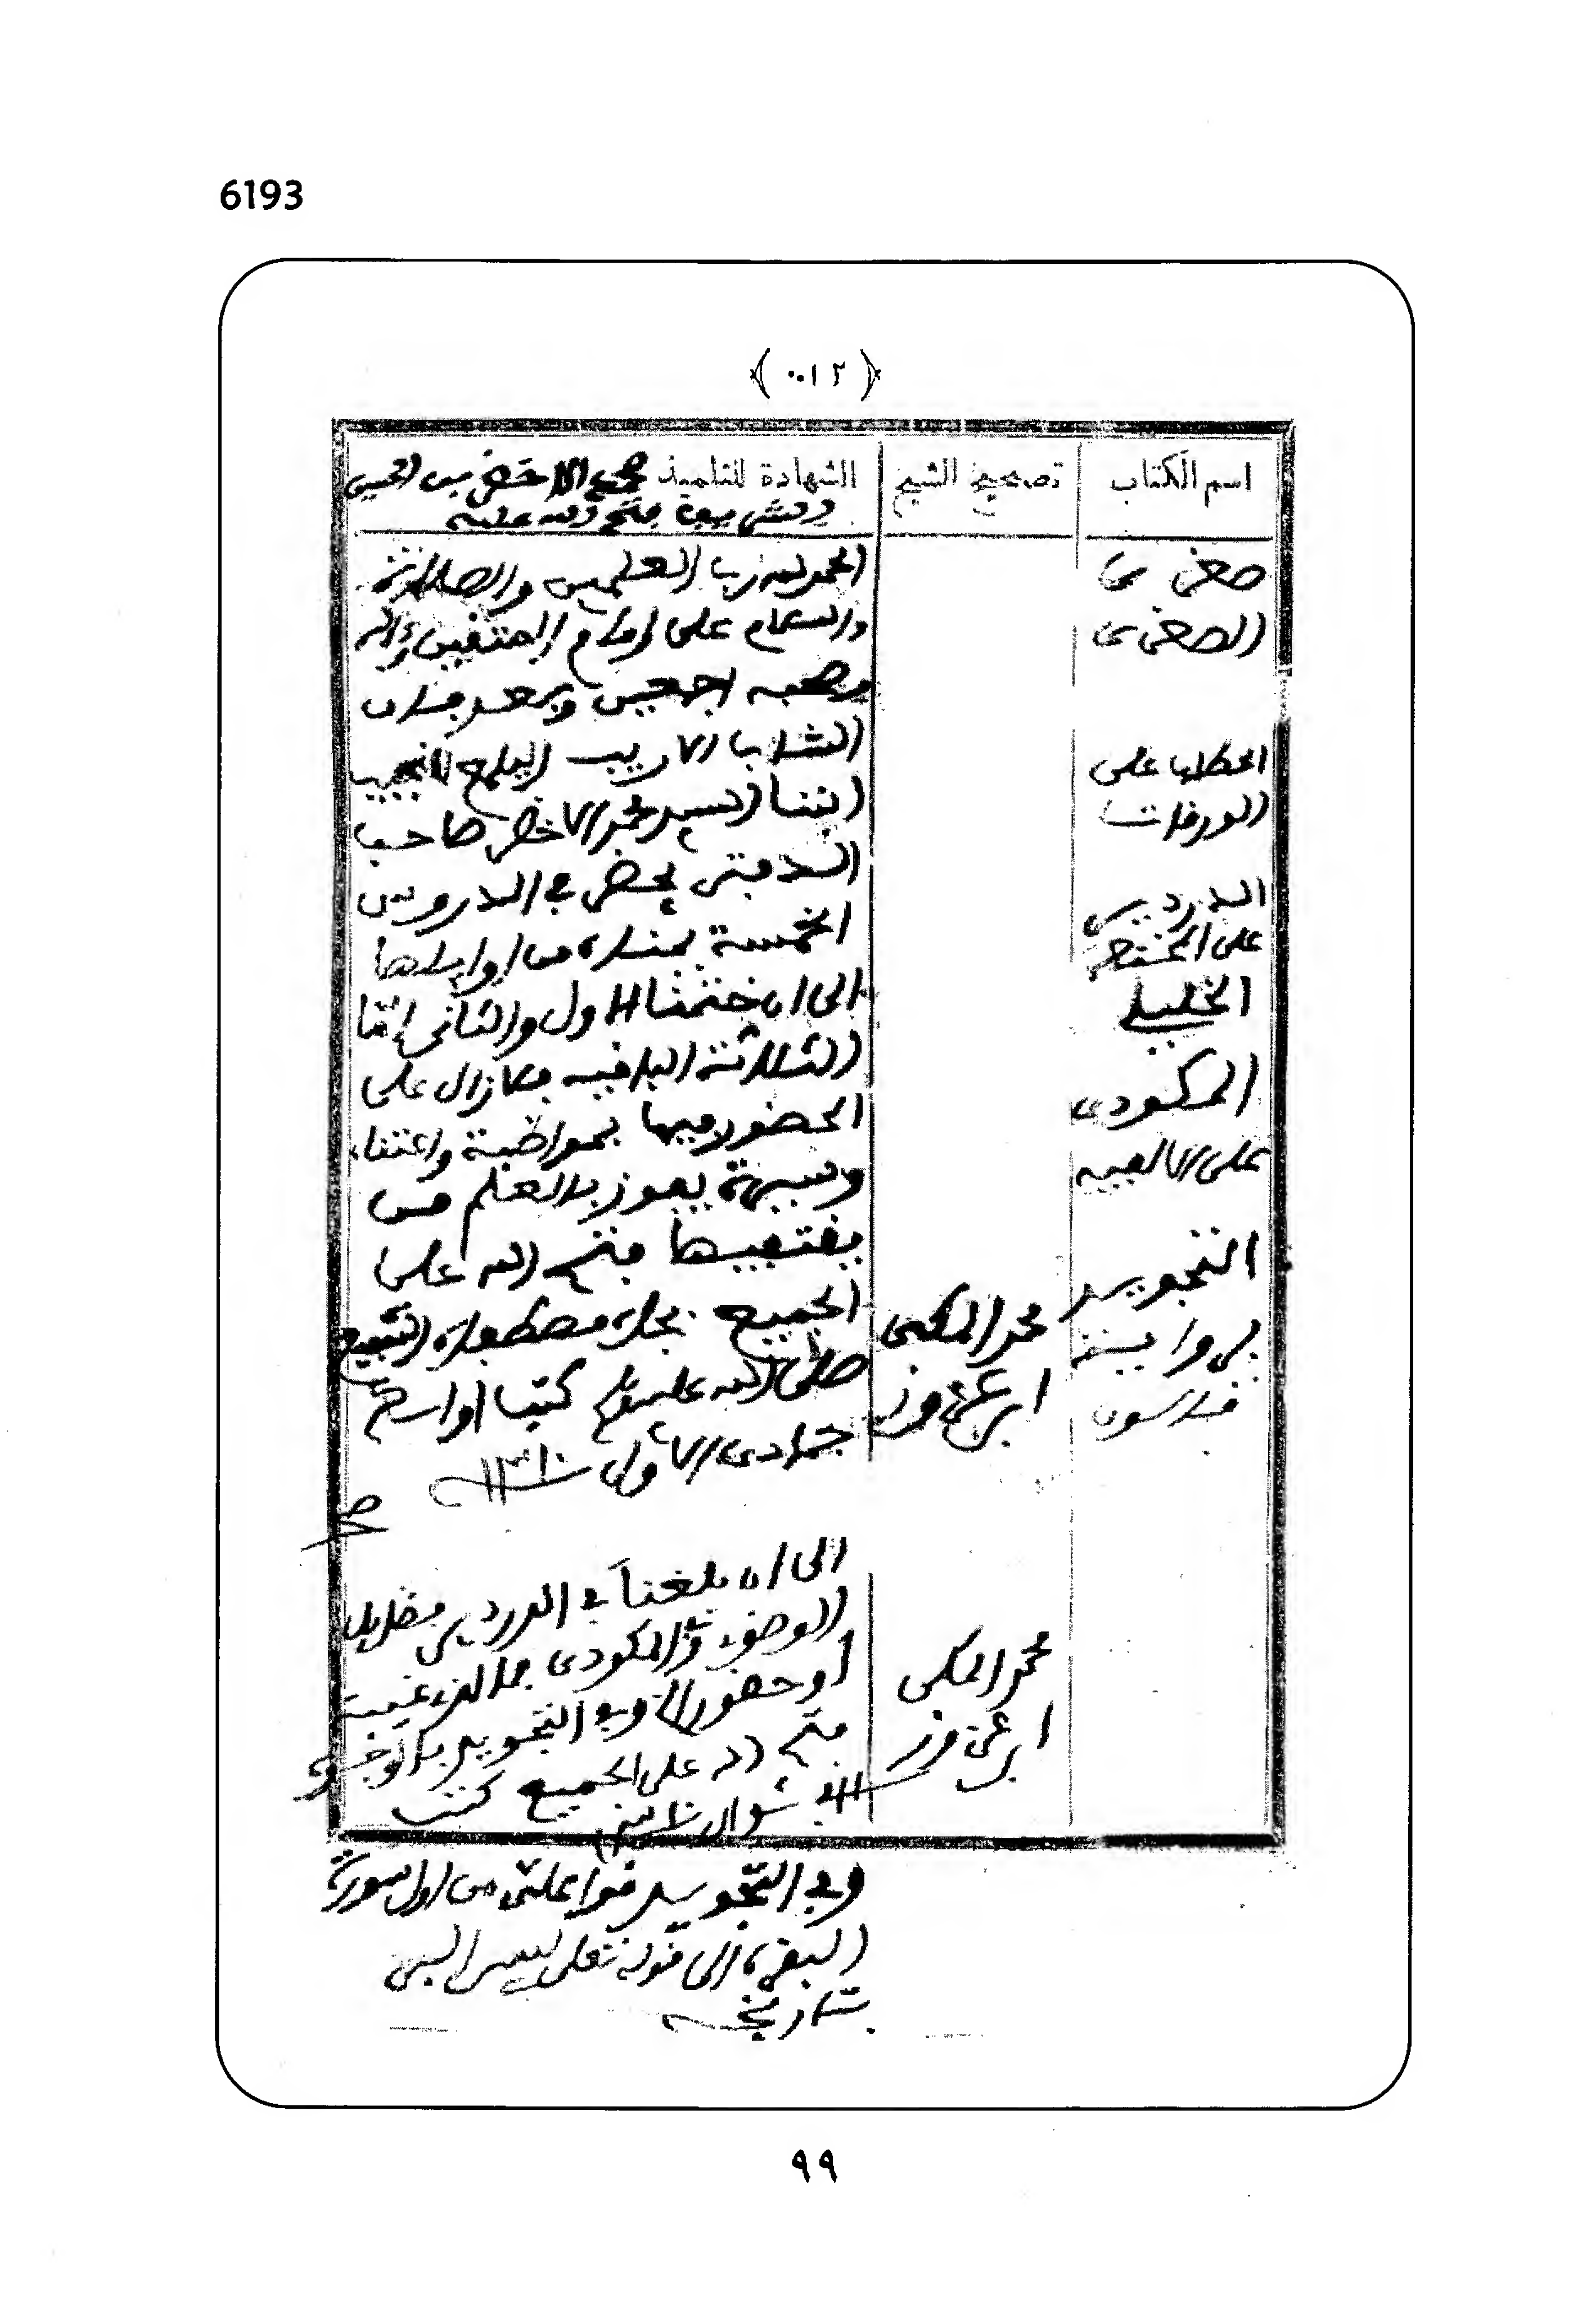 6193
﴿٠٠١٢﴾
اسم الكتاب
تصحيح الشيخ
الشهادة للتلميذ محمد الاخضر بن الحسين
الشريف فتح الله عليه
صغرى
الصغرى
الحطاب على
الورقات
الدردير
على المختصر
الخليلي
المكودي
على الالفية
التجويد
برواية
قالون
محمد المكي
ابن عزوز
الحمد لله رب العلمين والصلاة
والسلام على امام المتقين وءاله
وصحبه اجمعين وبعد فان
الشاب الاريب البارع النجيب
ابننا السيد محمد الاخضر صاحب
الدفتر يحضر في الدروس
الخمسة بمنار من اوايلها
الى ان ختمنا الاول والثاني امّا
الثلاثة الباقية فلا زال على
الحضور فيها بمواظبة واعتناء
وسيرة يفوز بالعلم من
يقتفيها فتح الله على
الجميع بجاه مصطفاه الشفيع
صلى الله عليه وسلم كتب اواسط
جمادى الاول ١٣١٠
صح
محمد المكي
ابن عزوز
الى ان بلغنا في الدردير فضايل
الوضوء وفي المكودي
او حضور وفي التجويد
فتح الله على الجميع كتب
شوال
وفي التجويد قرا علي من اول سورة
البقرة الى قوله تعلى ليس البر
تاريخه
٩٩